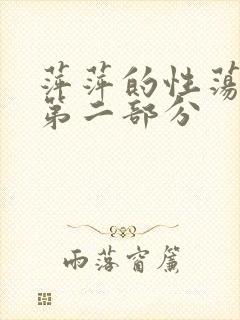 萍萍的性荡
第二部分
雨落窗簾